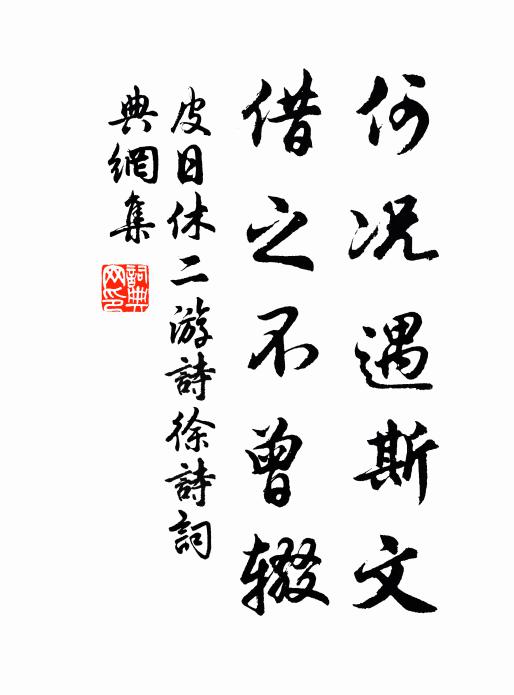 何况遇斯文
借之不曾辍
皮日休二游詩徐詩詞
典網集
詞典
网印